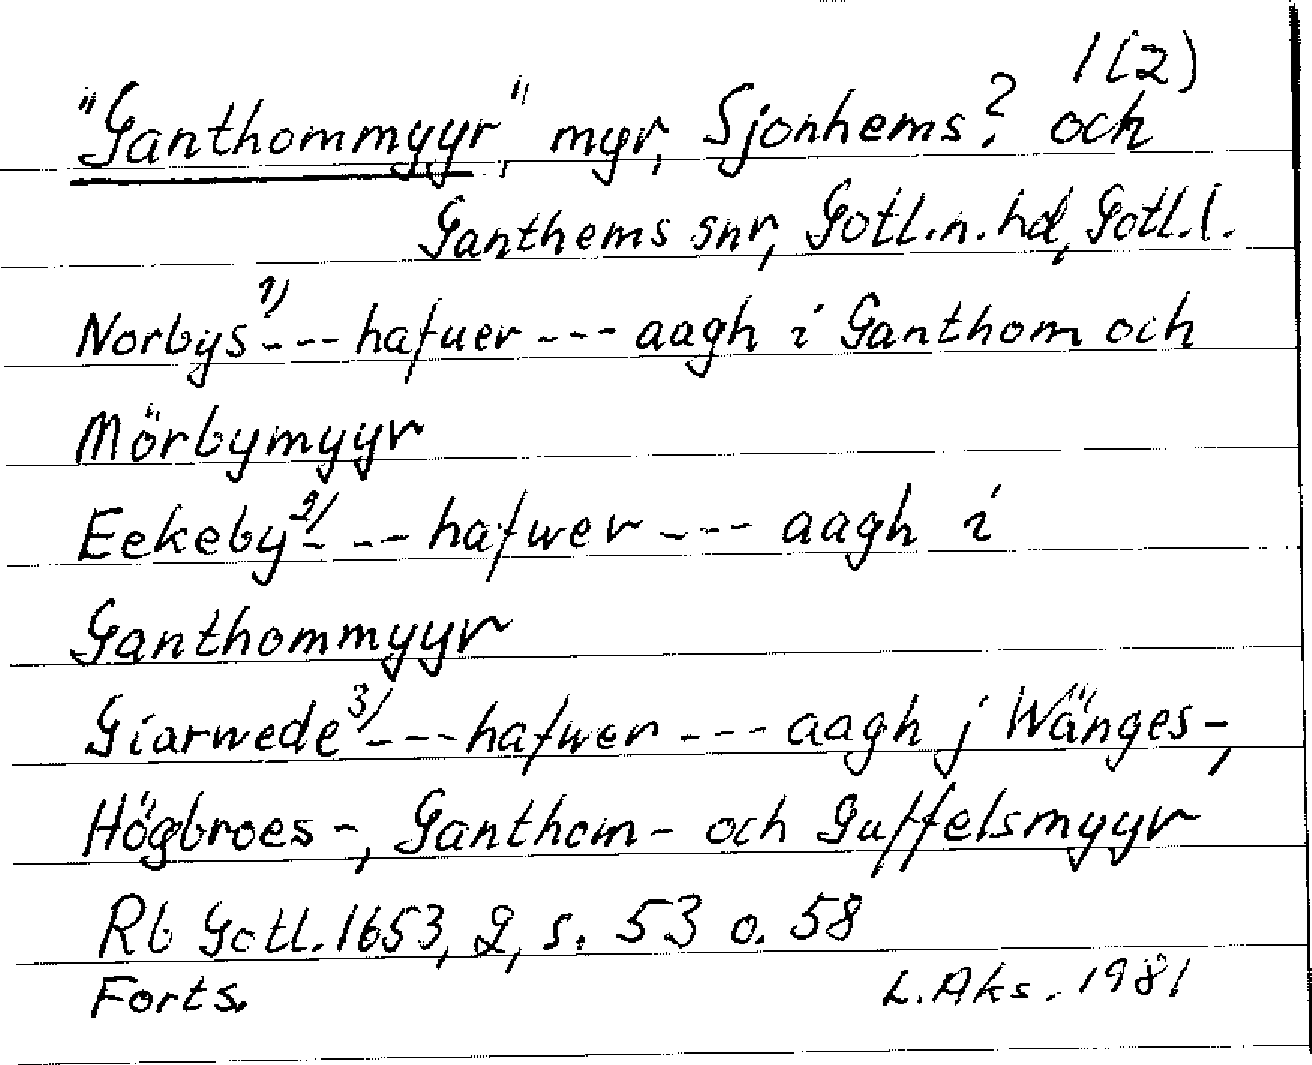 1(2)
"Ganthommyyr", myr, Sjonhems? och
Ganthems snr, Gotl.n.hd, Gotl.l.
Norbys 1) --- hafuer --- aagh i Ganthom och
Mörbymyyr
Eekeby 2) --- hafwer --- aagh i
Ganthommyyr
Giarwede 3) --- hafwer --- aagh j Wänges-,
Högbroes-, Ganthom- och Guffelsmyyr
Rb Gotl. 1653, 2, s. 53 o. 58
Forts. L. Aks. 1981